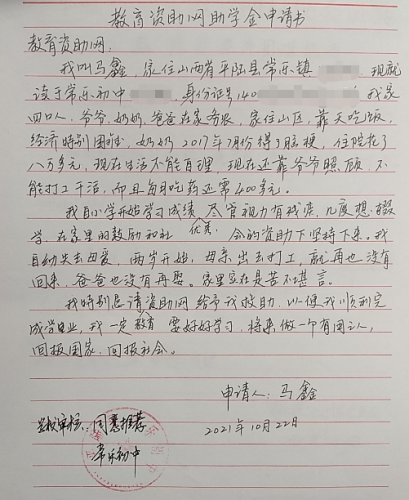 教育资助网助学金申请书
教育资助网:
我叫马鑫,家住山西省平陆县常乐镇 现就
读于常乐初中 ,身份证号140 我家
四口人,爷爷、奶奶、爸爸在家务农,家住山区,靠天吃饭,
经济特别困难,奶奶2017年7月份得了脑梗,住院花了
八万多元,现在生活不能自理,现在还靠爷爷照顾,不
能打工干活,而且每月吃药还需400多元。
我自小学开始学习成绩优秀,尽管视力有残疾,几度想辍
学,在家里的鼓励和社会的资助下坚持下来。我
自幼失去母爱,两岁开始,母亲出去打工,就再也没有
回来,爸爸也没有再娶。家里实在是苦不堪言。
我特别恳请教育资助网给予我救助,以便我顺利完
成学业,我一定要好好学习,将来做一个有用之人,
回报国家,回报社会。
申请人:马鑫
学校审核:同意推荐
常乐初中
2021年10月22日